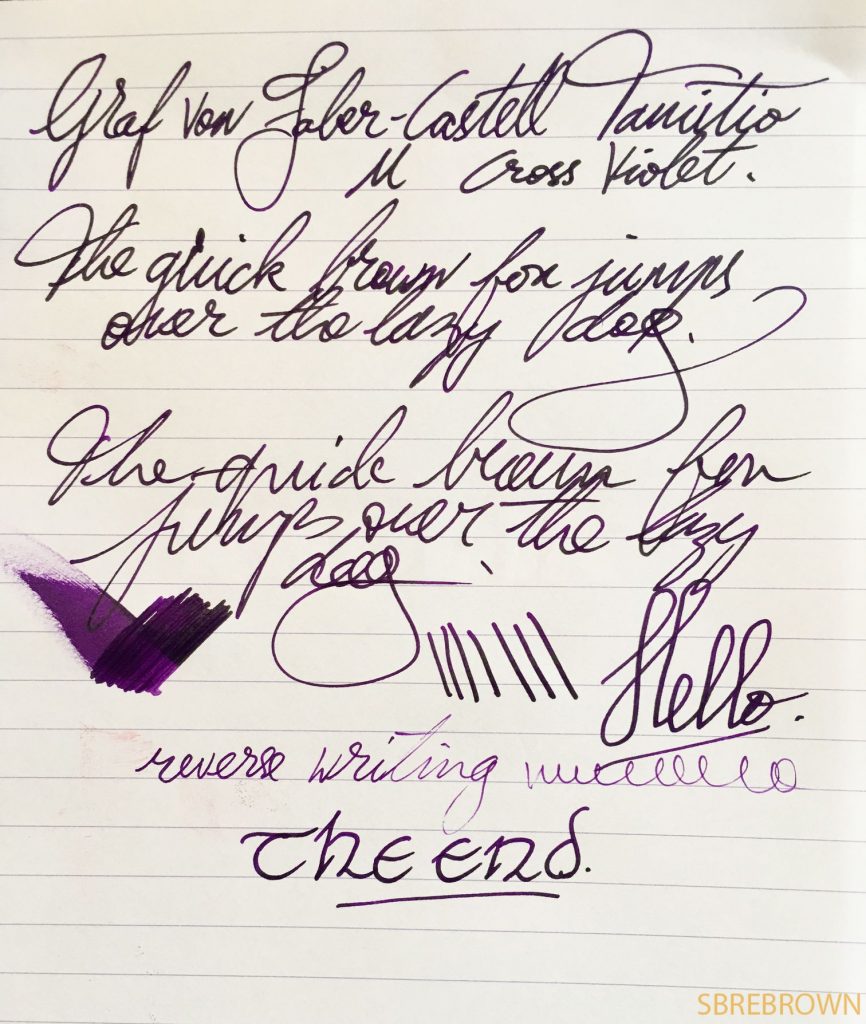 Graf von Faber-Castell Tamitio
M Cross Violet.
The quick brown fox jumps
over the lazy dog.
The quick brown fox
jumps over the lazy
dog.
Hello.
reverse writing
The end.
SBREBROWN